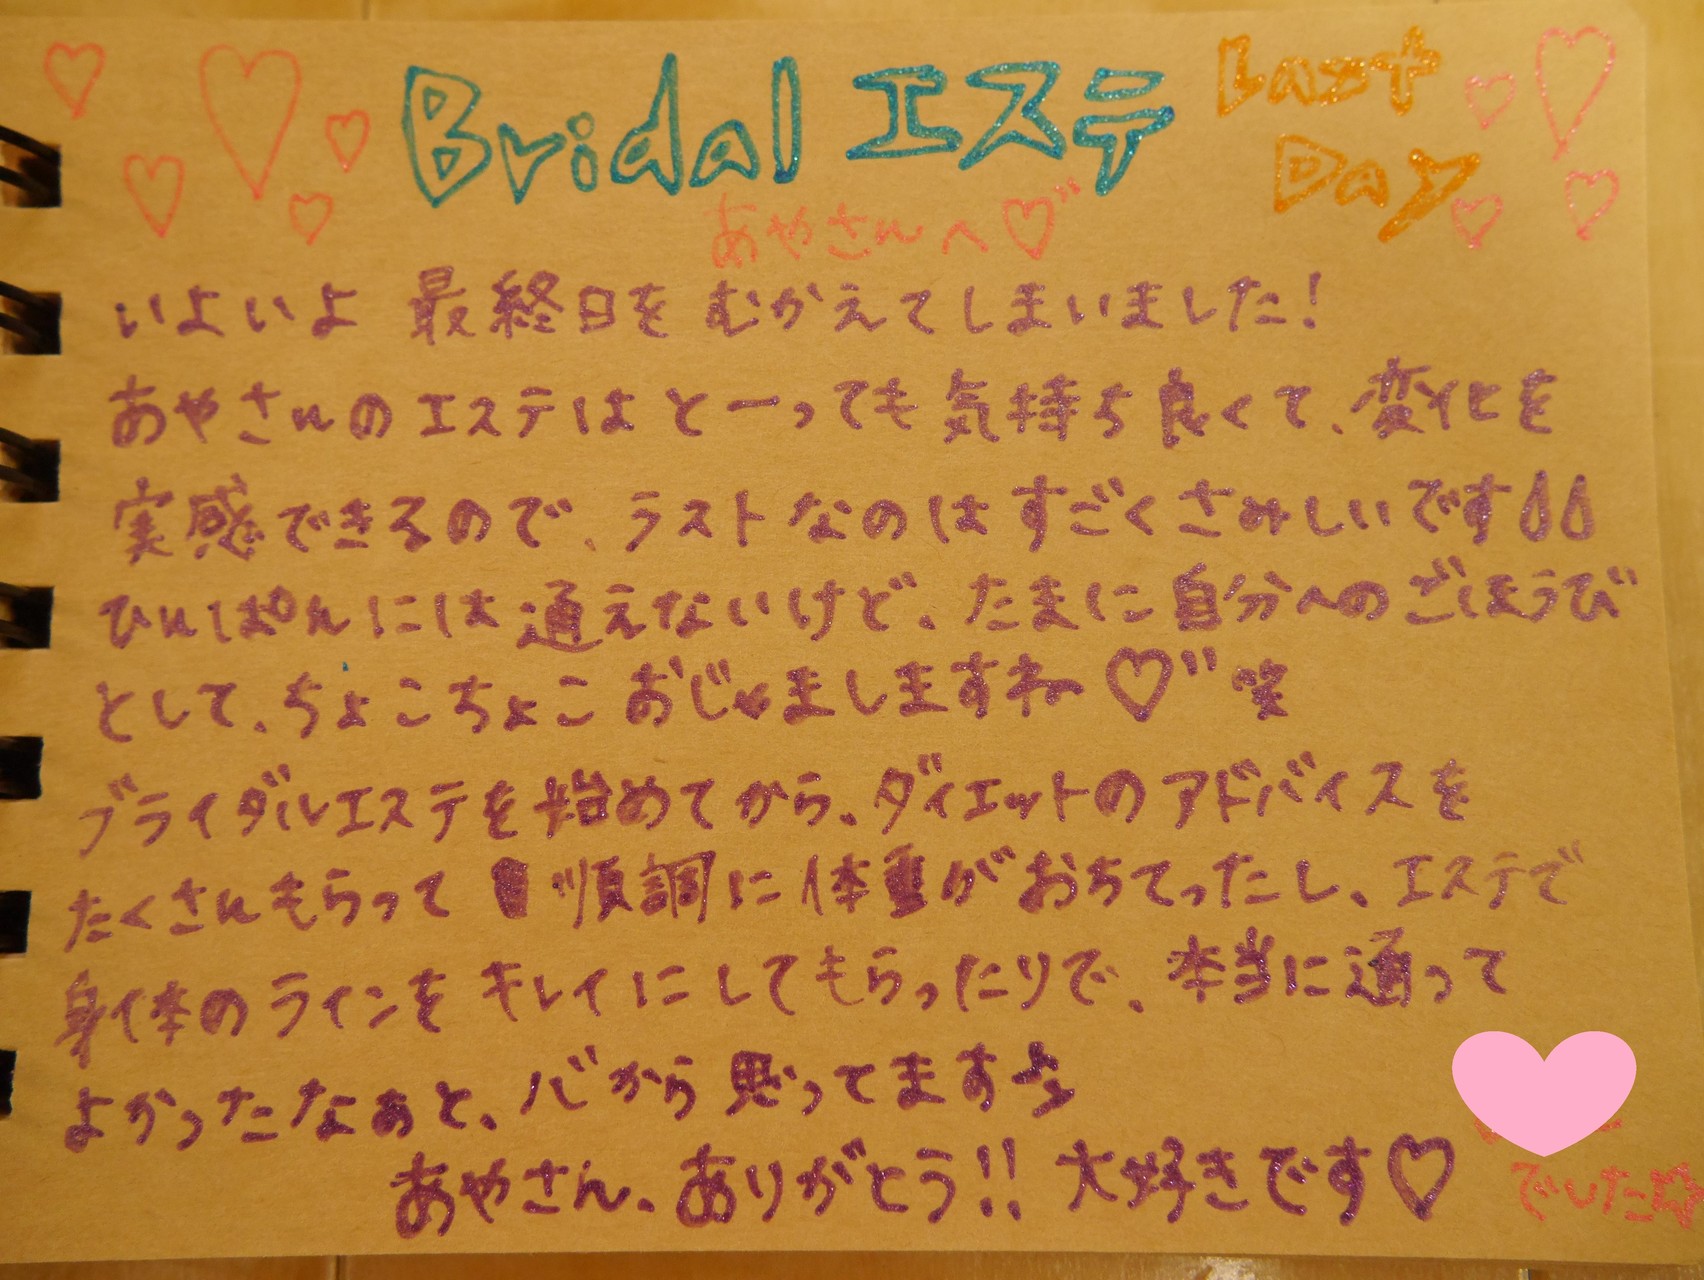 Bridal エステ Last Day
あやさんへ♡"
いよいよ 最終日を むかえてしまいました!
あやさんの エステは とーっても 気持ち良くて、変化を
実感できるので、ラストなのは すごくさみしいです
ひんぱんには 通えないけど、たまに 自分へのごほうび
として、ちょこちょこ おじゃましますね♡" 笑
ブライダルエステを始めてから、ダイエットのアドバイスを
たくさんもらって 順調に 体重が おちてったし、エステで
身体の ラインを キレイにしてもらったりで、本当に通って
よかったなぁと、心から 思ってます☆
あやさん、ありがとう!! 大好きです♡
でした☆